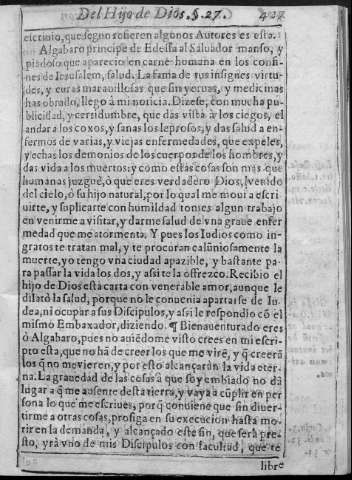 Del Hijo de Dios. §. 27. 427
escrivio, que segun refieren algunos Autores es esta.
Algabaro principe de Edessa al Salvador manso, y
piadoso que aparecio en carne humana en los confi-
nes de Ierusalem, salud. La fama de tus insignes virtu-
des, y curas maravillosas que sin yervas, y medicinas
has obrado, llegò a mi noticia. Dizese, con mucha pu-
blicidad, y certidumbre, que das vista à los ciegos, el
andar a los coxos, y sanas los leprosos, y das salud a en-
fermos de varias, y viejas enfermedades, que expeles,
y echas los demonios de los cuerpos de los hombres, y
das vida a los muertos: y como estas cosas son mas que
humanas juzguè, ò que eres verdadero Dios, venido
del cielo, ò su hijo natural, por lo qual me movi a escri
uirte, y suplicarte con humildad tomes algun trabajo
en venirme a visitar, y darme salud de vna grave enfer
medad que me atormenta. Y pues los Iudios como in-
gratos te tratan mal, y te procuran calūniosamente la
muerte, yo tengo vna ciudad apazible, y bastante pa-
ra passar la vida los dos, y assi te la ofrezco. Recibio el
hijo de Dios esta carta con venerable amor, aunque le
dilatò la salud, porque no le convenia apartarse de Iu-
dea, ni ocupar a sus Discipulos, y assi le respondio cō el
mismo Embaxador, diziendo. ¶ Bienaventurado eres
ò Algabaro, pues no auiēdome visto crees en mi escri-
pto està, que no hā de creer los que me virē, y q̄ creerā
los q̄ no me vieren, y por esto alcançarān la vida eter-
na. La gravedad de las cosas a que soy embiado no dà
lugar a q̄ me ausente desta tierra, y vaya a cūplir en per
sona lo que me escriues, porq̄ conviene que sin diver-
tirme a otras cosas, prosiga en su execucion hasta mo-
rir en la demanda, y alcançado este fin, que serà pre-
sto, yrà vno de mis Discipulos con facultad, que te
libre